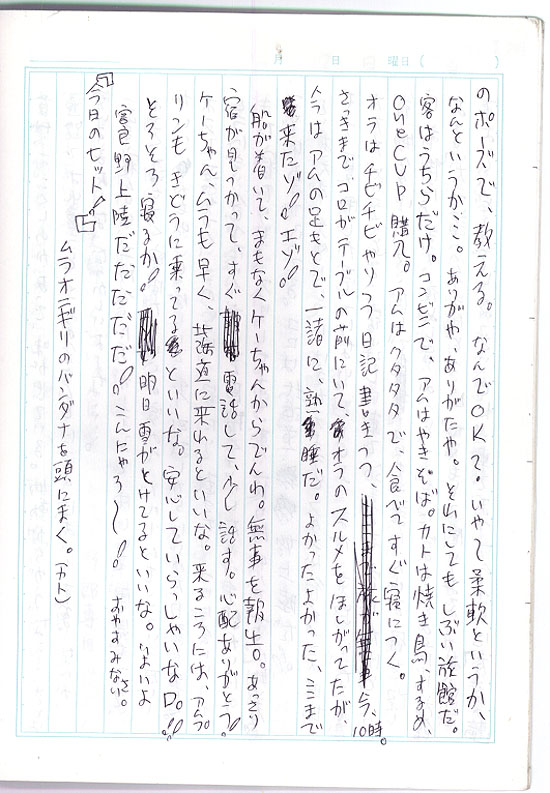 月 日 曜日( )
のポーズで、教える。なんでOK?いやて柔軟というか、
なんというか…。ありがや、ありがたや。それにしてもしぶい旅館だ。
客はうちらだけ。コンビニで、アムはやきそば。カトは焼き鳥、するめ、
One CUP 購入。アムはクタクタで、食べてすぐ寝につく。
オラはチビチビやりつつ日記書きつつ、今、10時。
さっきまで、コロがテーブルの前にいて、オラのスルメをほしがってたが、
ムラはアムの足もとで、一諸に、熟睡だ。よかったよかった、ここまで
来たゾ!!エゾ!!
船が着いて、まもなくケーちゃんからでんわ。無事を報告。あっさり
宿が見つかって、すぐ電話して、少し話す。心配ありがとう!!
ケーちゃん、ムラも早く、北海道に来れるといいな。来るころには、アム。
リンもきどうに乗ってるといいな。安心していらっしゃいなD。!!
そろそろ寝るか!明日雪がとけてるといいな。いよいよ
富良野上陸だだだだだ!!こんにゃろ〜!おやすみなさい。
「今日のヒット!」
ムラオニギリのバンダナを頭にまく。(カト)